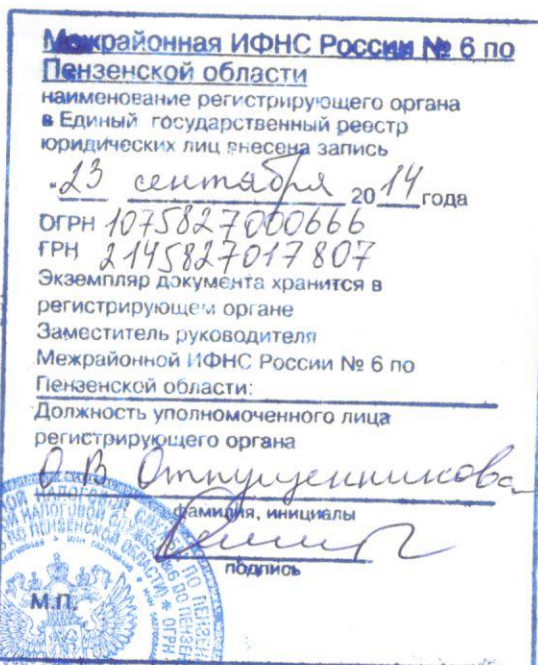 Межрайонная ИФНС России № 6 по
Пензенской области
наименование регистрирующего органа
в Единый государственный реестр
юридических лиц внесена запись
"23 сентября 2014 года
ОГРН 1075827000666
ГРН 2145827017807
Экземпляр документа хранится в
регистрирующем органе
Заместитель руководителя
Межрайонной ИФНС России № 6 по
Пензенской области:
Должность уполномоченного лица
регистрирующего органа
О В Отпущенникова
фамилия, инициалы
подпись
М.П.